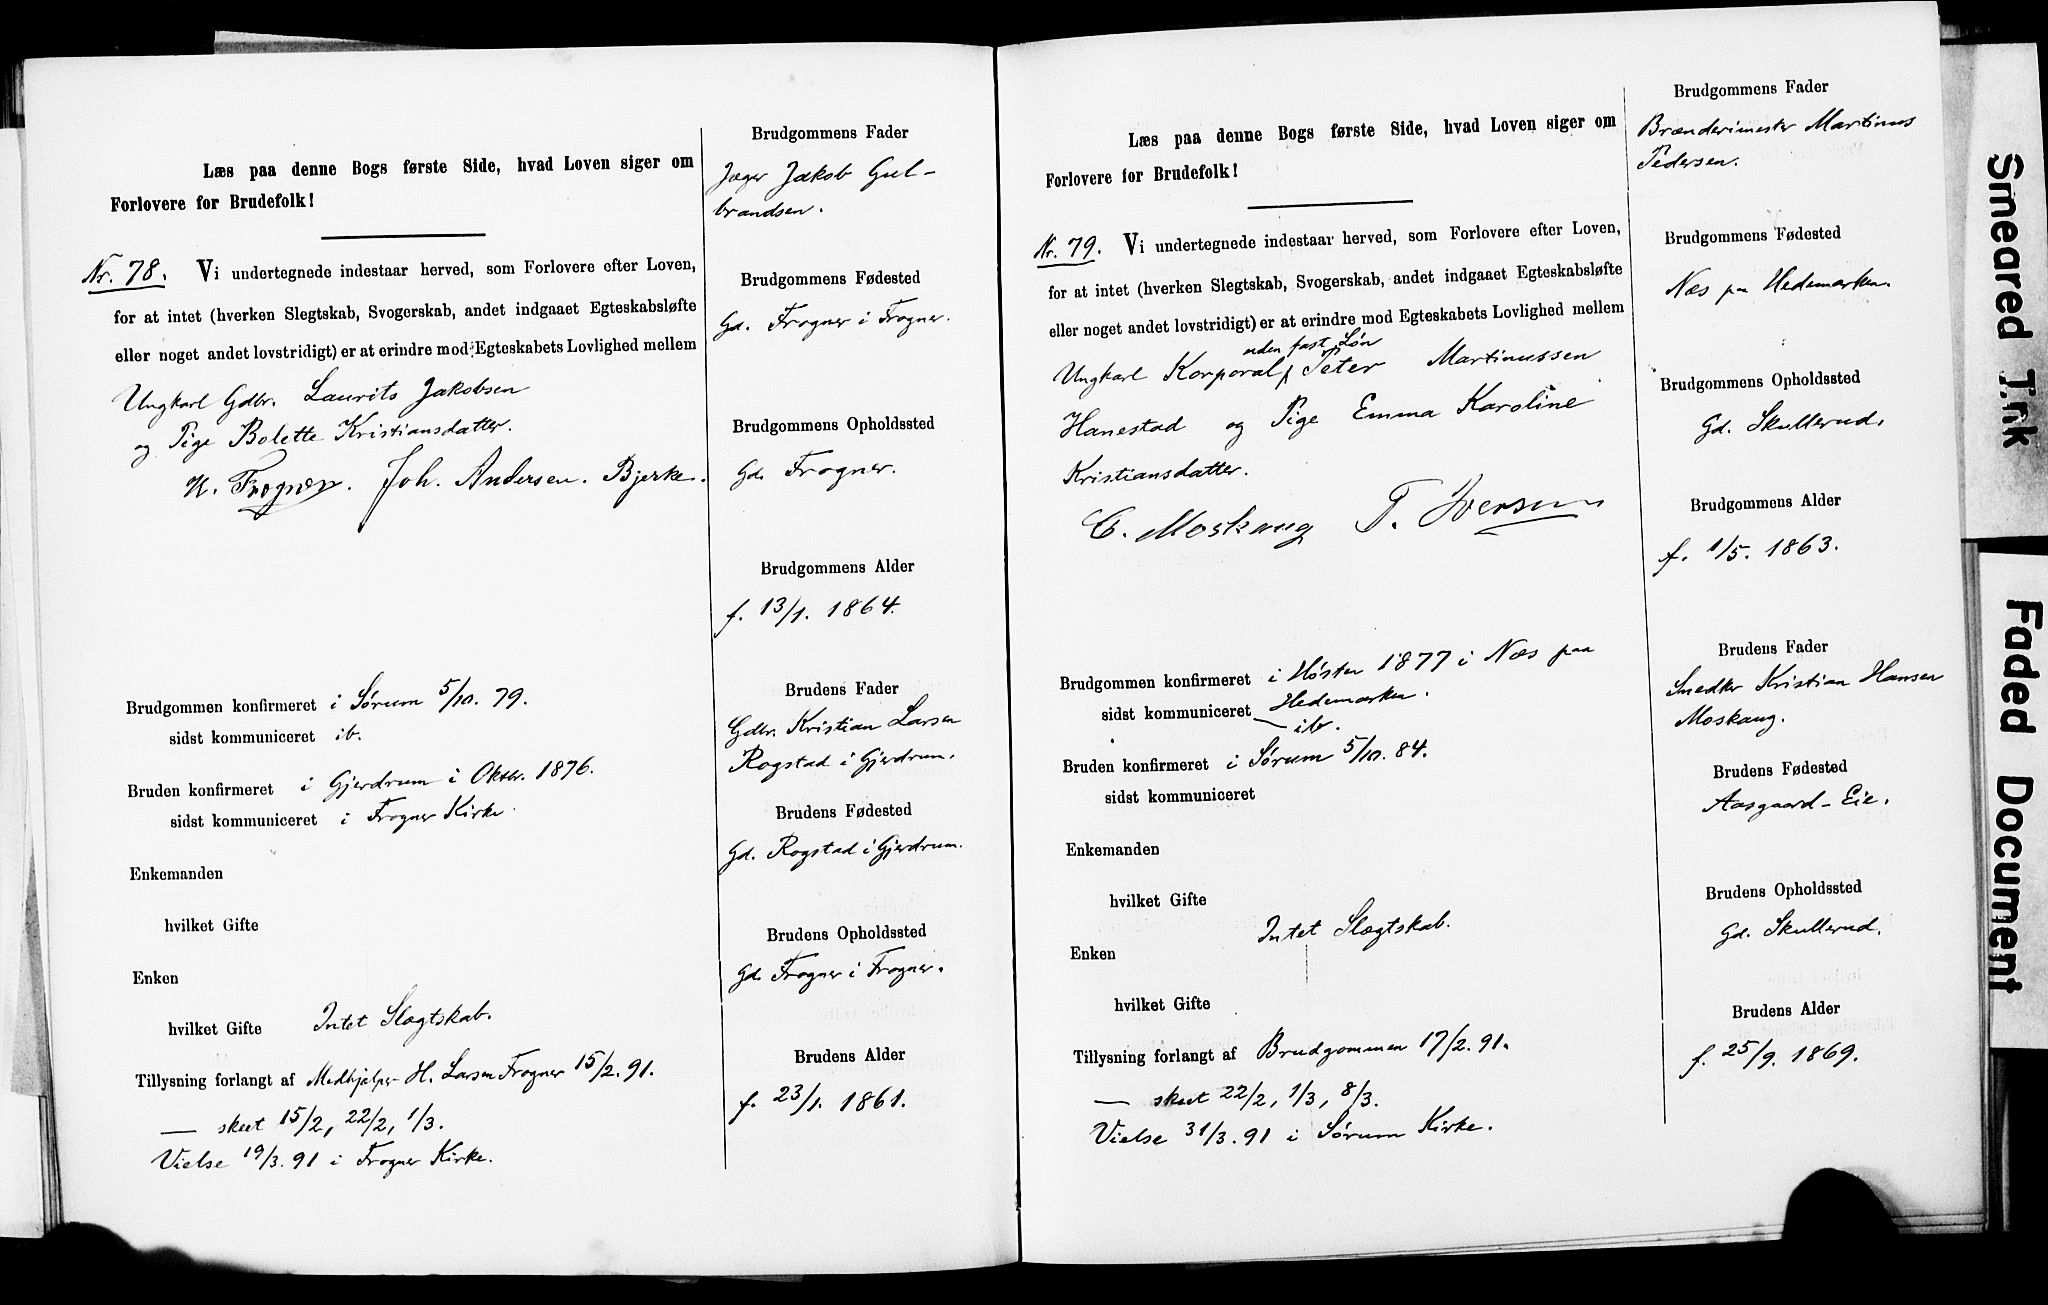 Læs paa denne Bogs første Side, hvad Loven siger om
Forlovere for Brudefolk!
Nr. 78. Vi undertegnede indestaar herved, som Forlovere efter Loven,
for at intet (hverken Slegtskab, Svogerskab, andet indgaaet Egteskabsløfte
eller noget andet lovstridigt) er at erindre mod Egteskabets Lovlighed mellem
Ungkarl Gdbr. Laurits Jakobsen
og Pige Bolette Kristiansdatter.
H. Frogner. Joh. Andersen. Bjerke.
Brudgommen konfirmeret i Sørum 5/10. 79.
sidst kommuniceret ib.
Bruden konfirmeret i Gjerdrum i Oktbr. 1876.
sidst kommuniceret i Frogner Kirke.
Enkemanden
hvilket Gifte
Enken
hvilket Gifte Intet Slægtskab.
Tillysning forlangt af Medhjælper H. Larsen Frogner 15/2. 91.
— skeet 15/2, 22/2, 1/3.
Vielse 19/3. 91 i Frogner Kirke.
Brudgommens Fader
Jæger Jakob Gul-
brandsen.
Brudgommens Fødested
Gd. Frogner i Frogner.
Brudgommens Opholdssted
Gd. Frogner.
Brudgommens Alder
f. 13/1. 1864.
Brudens Fader
Gdbr. Kristian Larsen
Rogstad i Gjerdrum.
Brudens Fødested
Gd. Rogstad i Gjerdrum.
Brudens Opholdssted
Gd. Frogner i Frogner.
Brudens Alder
f. 23/1. 1861.
Læs paa denne Bogs første Side, hvad Loven siger om
Forlovere for Brudefolk!
Nr. 79. Vi undertegnede indestaar herved, som Forlovere efter Loven,
for at intet (hverken Slegtskab, Svogerskab, andet indgaaet Egteskabsløfte
eller noget andet lovstridigt) er at erindre mod Egteskabets Lovlighed mellem
uden fast Løn
Ungkarl Korporal Peter Martinussen
Hanestad og Pige Emma Karoline
Kristiansdatter.
C. Moskaug T. Iversen
Brudgommen konfirmeret i Høsten 1877 i Næs paa
Hedemarken.
sidst kommuniceret — ib.
Bruden konfirmeret i Sørum 5/10. 84.
sidst kommuniceret
Enkemanden
hvilket Gifte
Intet Slægtskab.
Enken
hvilket Gifte
Tillysning forlangt af Brudgommen 17/2. 91.
— skeet 22/2, 1/3, 8/3.
Vielse 31/3. 91 i Sørum Kirke.
Brudgommens Fader
Brænderimester Martinus
Pedersen.
Brudgommens Fødested
Næs paa Hedemarken.
Brudgommens Opholdssted
Gd. Skullerud.
Brudgommens Alder
f. 1/5. 1863.
Brudens Fader
Smedker Kristian Hansen
Moskaug.
Brudens Fødested
Aasgaard-Eie.
Brudens Opholdssted
Gd. Skullerud.
Brudens Alder
f. 25/9. 1869.
Smeared Ink
Faded Document